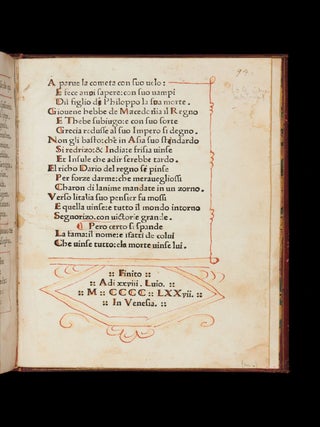 94.
A parue la cometa con suo uelo:
E fece anzi sapere: con suo uampi
Dil figlio di Philoppo la sua morte.
Giouene hebbe de Macedonia il Regno
E Thebe subiugo: e con suo forte
Grecia redusse al suo Imperio si degno.
Non gli basto: che in Asia suo stendardo
Si redrizo: & India: e frisia uinse
Et Insule che adir serebbe tardo.
El richo Dario del regno se pinse
Per forze darme: che meraueglioss
Charon di lanime mandate in un zorno.
Verso litalia suo pensier fu mossi
E quella uinse: e tutto il mondo intorno
Segnorizo. con uictorie grande.
Pero certo si spande
La fama: il nome: e i fatti de colui
Che uinse tutto: e la morte uinse lui.
:: Finito ::
:: Adi xxviii. Luio. ::
:: M :: CCCC :: LXXvii. ::
:: In Venesia. ::